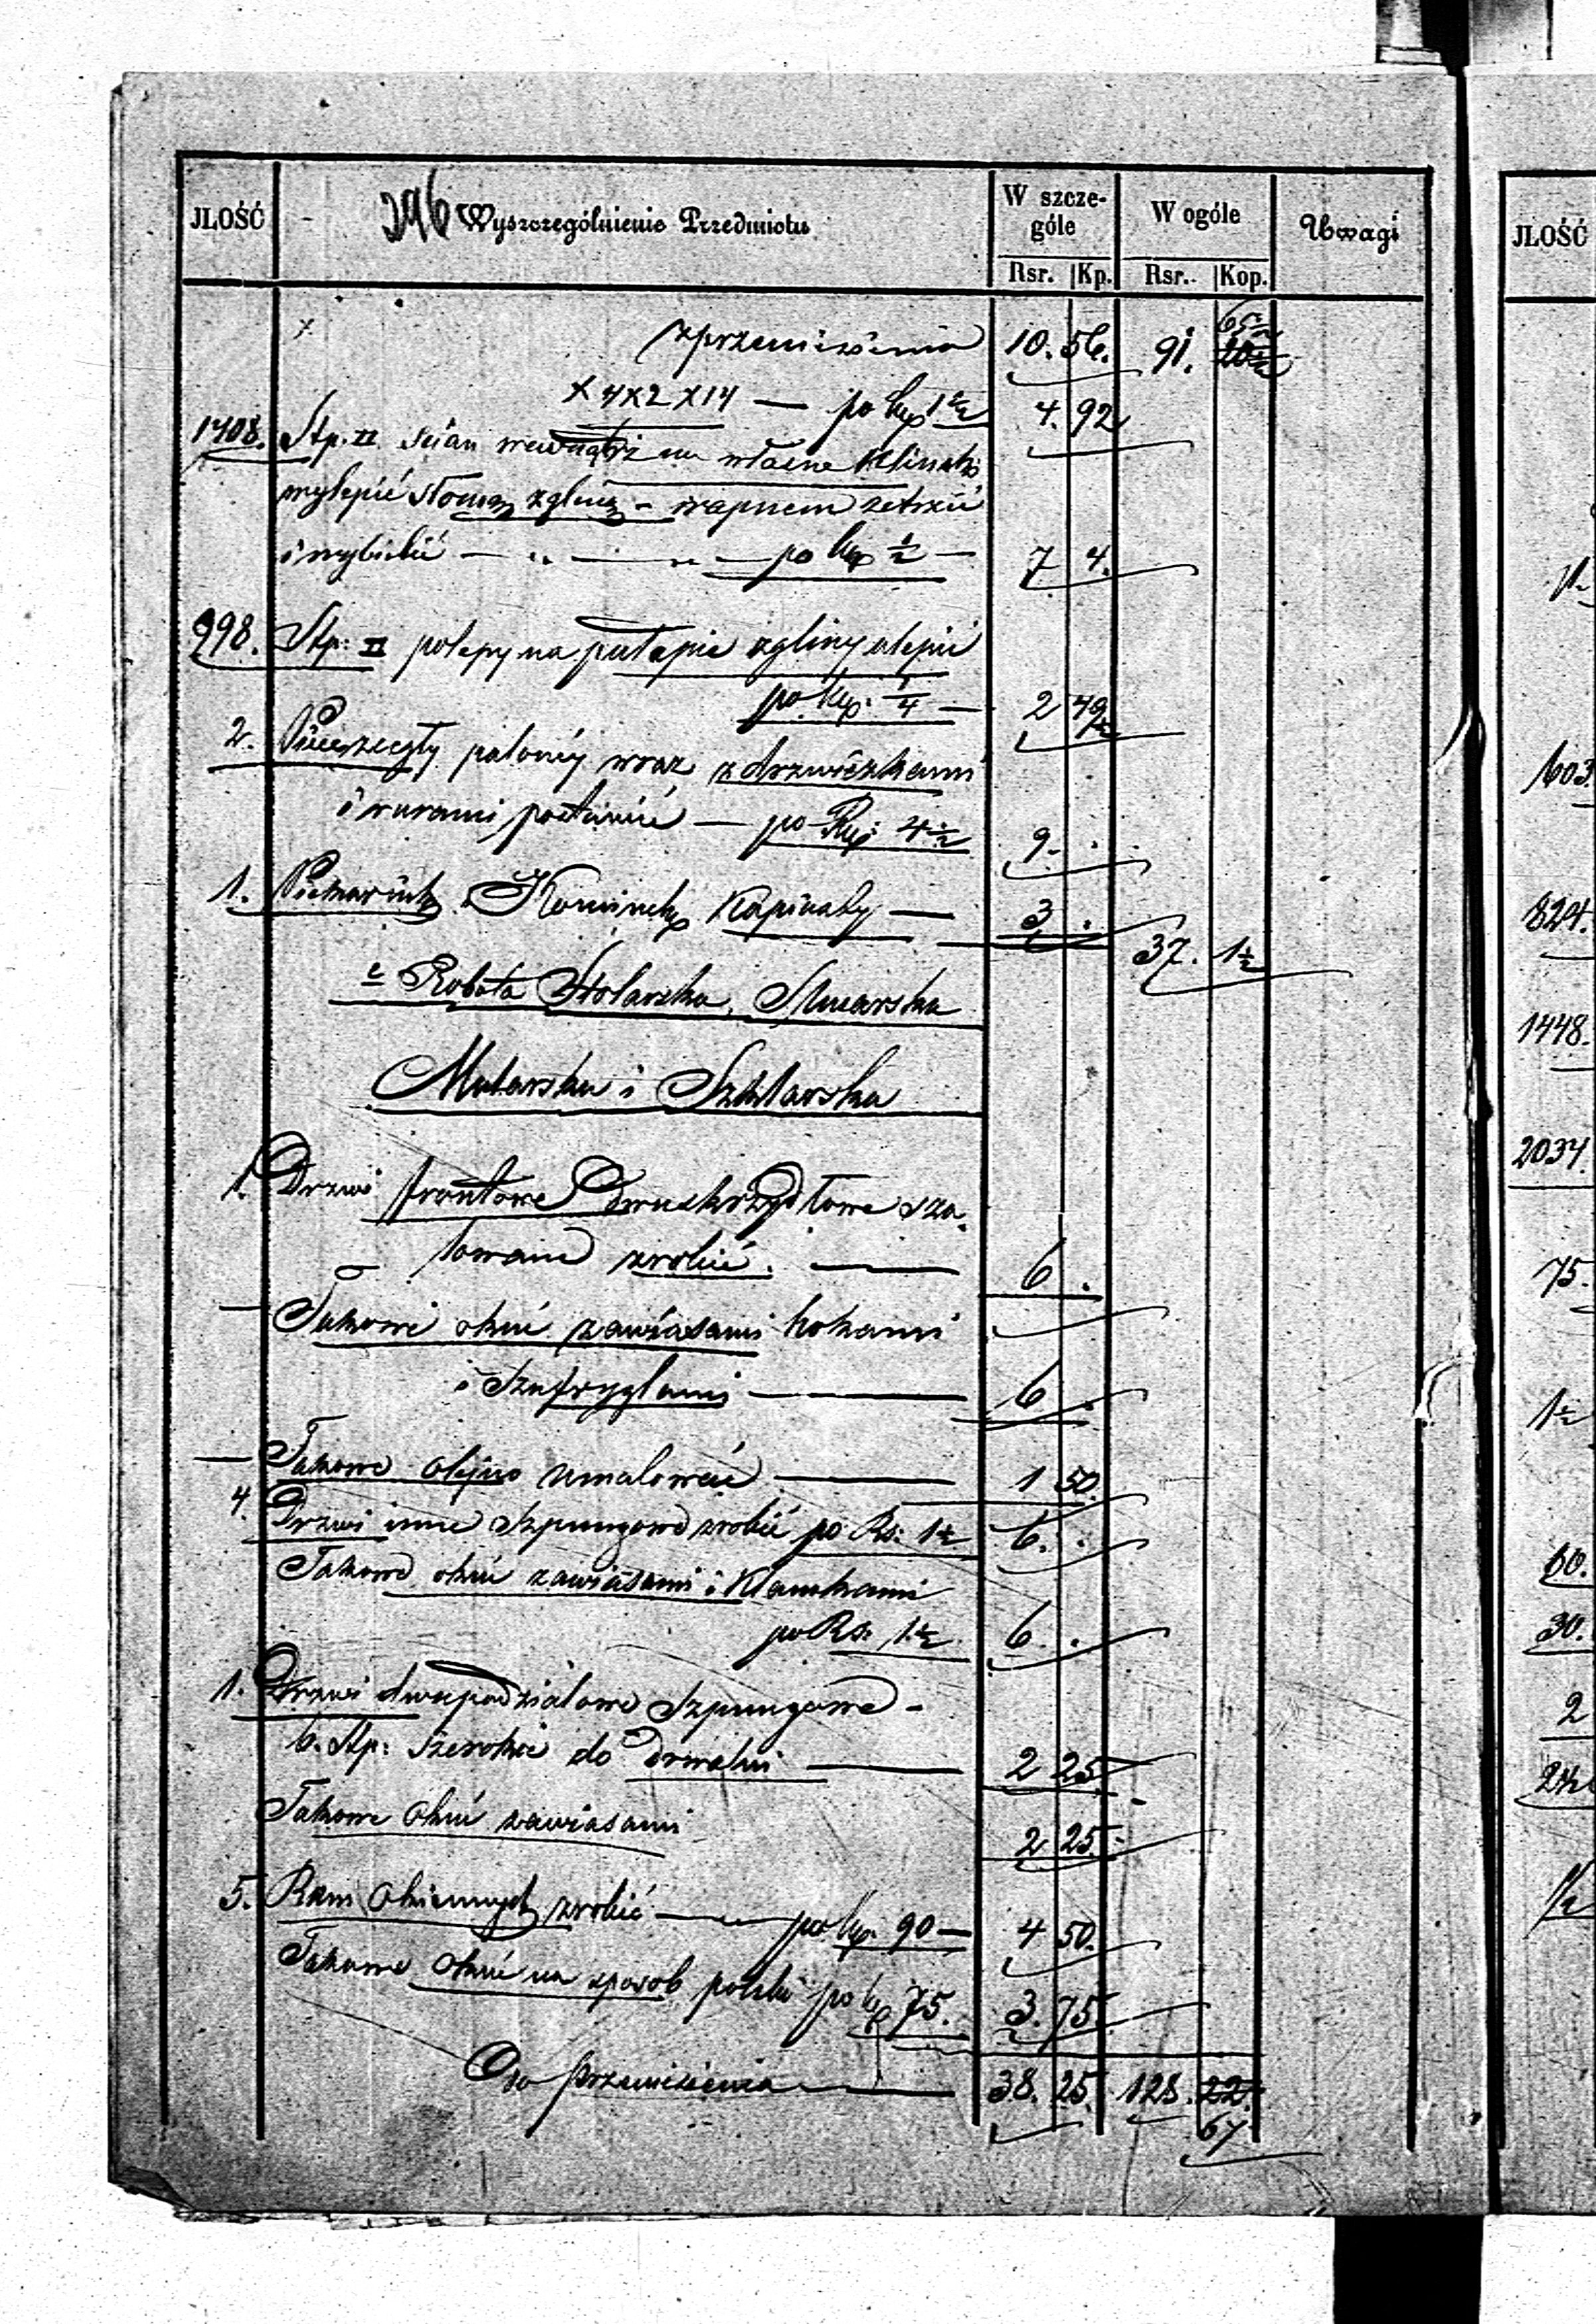 296
JLOŚĆ Wyszczególnienie Przedmiotu W szcze-góle W ogóle Uwagi
Rsr. Kp. Rsr. Kop.
z przeniesienia 10. 56. 91. 65½
× 4 × 2 × 14 — po kop 1½ 4. 92
1408. Stp. II ścian wewnątrz na własne
wylepić słomą z gliną – wapnem zetrzeć
i wybielić — „ — „ — po kop ½ — 7 4.
998. Stp: II polepy na pułapie z gliny ulepić
po kop: ¼ — 2 49½
2. Piece z cegły palonéj wraz z drzwiczkami
i rurami postawić — po Rs: 4½ 9. .
1. Kominek Kapiasty — 3 . 37. 1½
e Robota Stolarska, Ślusarska
Malarska i Szklarska
1. Drzwi frontowe Dwuskrzydłowe sza-
lowane zrobić. — 6 .
— Takowe okuć zawiasami hakami
i Szufryglami — 6 .
— Takowe olejno umalować — 1 50.
4. Drzwi inne Szpungowe zrobić po Rs: 1½ 6. .
Takowe okuć zawiasami i Klamkami
po Rs. 1½ 6 .
1. Drzwi dwupodziałowe Szpungowe –
6. Stp: szerokie do Drwalni — 2 25
Takowe Okuć zawiasami 2 25.
5. Ram Okiennych zrobić — po kop. 90 — 4 50.
Takowe Okuć na sposób polski po kop 75. 3. 75.
Do przeniesienia — 38. 25. 128. 22.
67
JLOŚĆ
1.
603
824.
1448.
2034
75.
1½
60.
30.
2